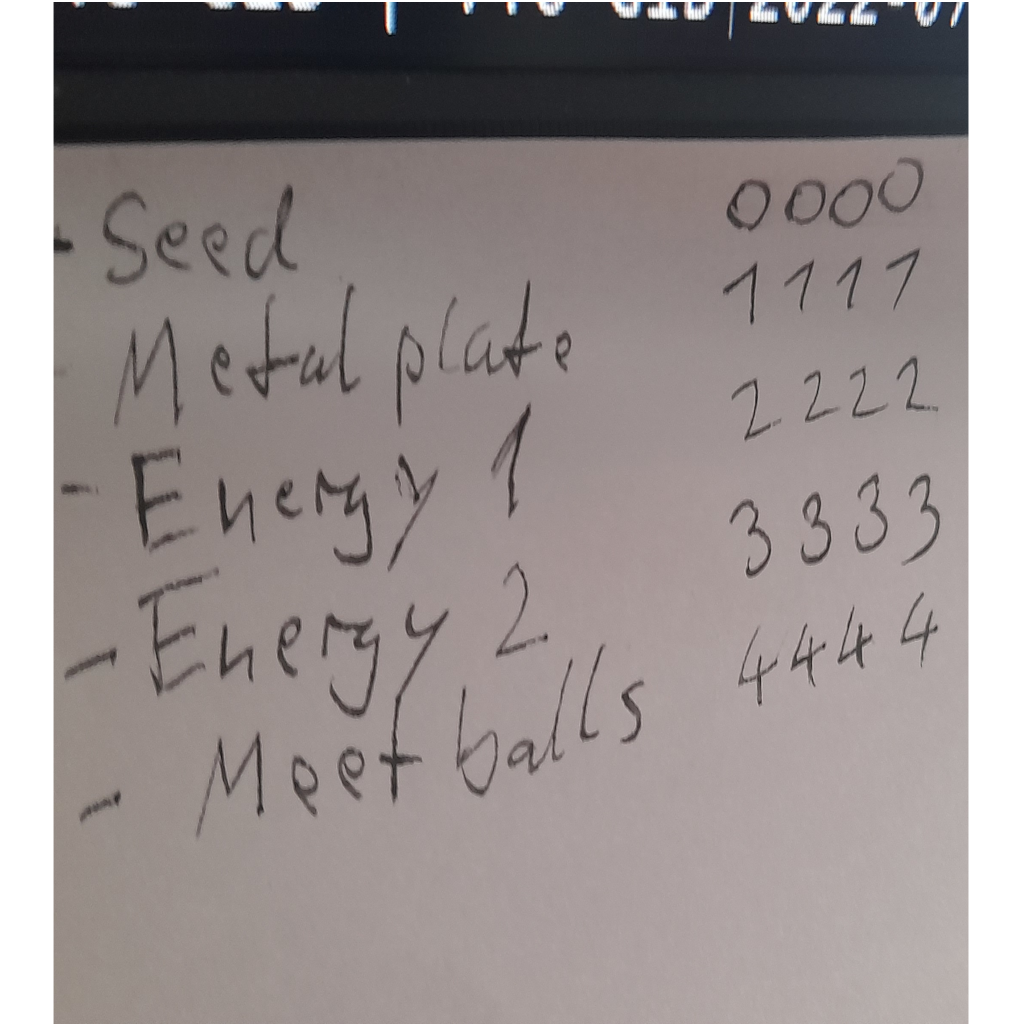 2022-07
- Seed 0000
- Metal plate 1111
- Energy 1 2222
- Energy 2 3333
- Meet balls 4444